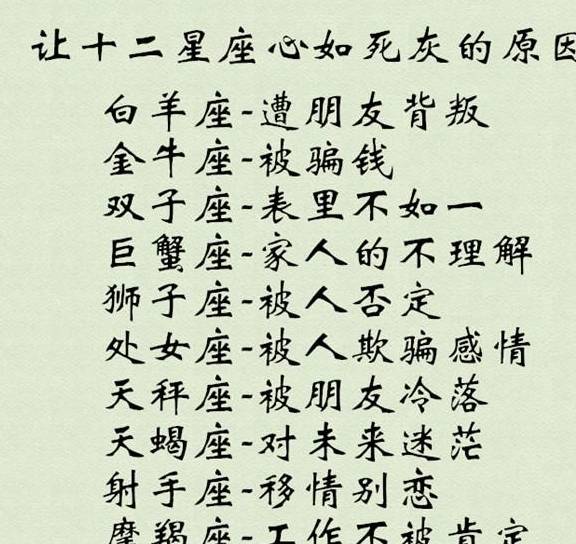 让十二星座心如死灰的原因
白羊座-遭朋友背叛
金牛座-被骗钱
双子座-表里不如一
巨蟹座-家人的不理解
狮子座-被人否定
处女座-被人欺骗感情
天秤座-被朋友冷落
天蝎座-对未来迷茫
射手座-移情别恋
摩羯座-工作不被肯定